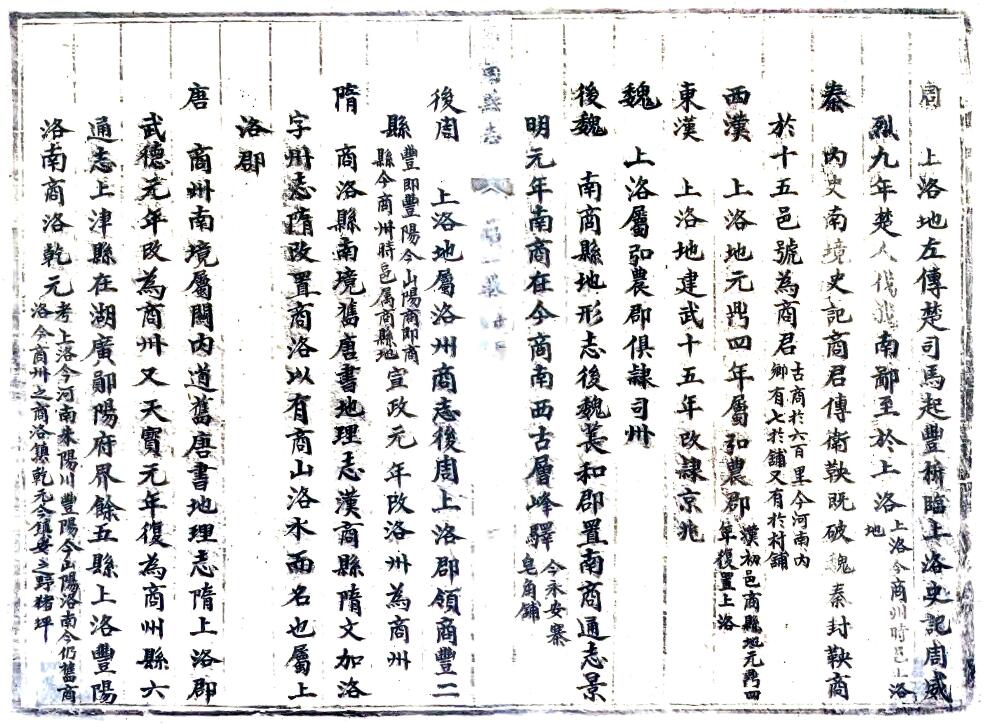 周 上洛地左傳楚司馬起豐析臨上洛史記周威
烈九年楚人伐我南鄙至於上洛上洛今商州時邑上洛地
秦 內史南境史記商君傳衛鞅既破魏秦封鞅商
於十五邑號為商君古商於六百里今河南內鄉有七於舖又有於村舖
西漢 上洛地元鼎四年屬弘農郡漢初邑商縣地元鼎四年復置上洛
東漢 上洛地建武十五年改隸京兆
魏 上洛屬弘農郡俱隸司州
後魏 南商縣地形志後魏萇和郡置南商通志景
明元年南商在今商南西古層峰驛今永安寨皂角舖
後周 上洛地屬洛州商志後周上洛郡領商豐二
縣豐即豐陽今山陽商即商縣今商州時邑属商縣地宣政元年改洛州為商州
隋 商洛縣南境舊唐書地理志漢商縣隋文加洛
字州志隋改置商洛以有商山洛水而名也屬上
洛郡
唐 商州南境屬關內道舊唐書地理志隋上洛郡
武德元年改為商州又天寶元年復為商州縣六
通志上津縣在湖廣鄖陽府界餘五縣上洛豐陽
洛南商洛乾元考上洛今河南朱陽川豐陽今山陽洛南今仍舊商洛今商州之商洛鎮乾元今鎮安之野猪坪